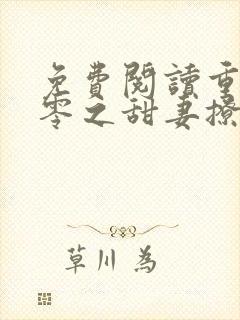 免費閱讀重
零之甜妻撩
草川 為